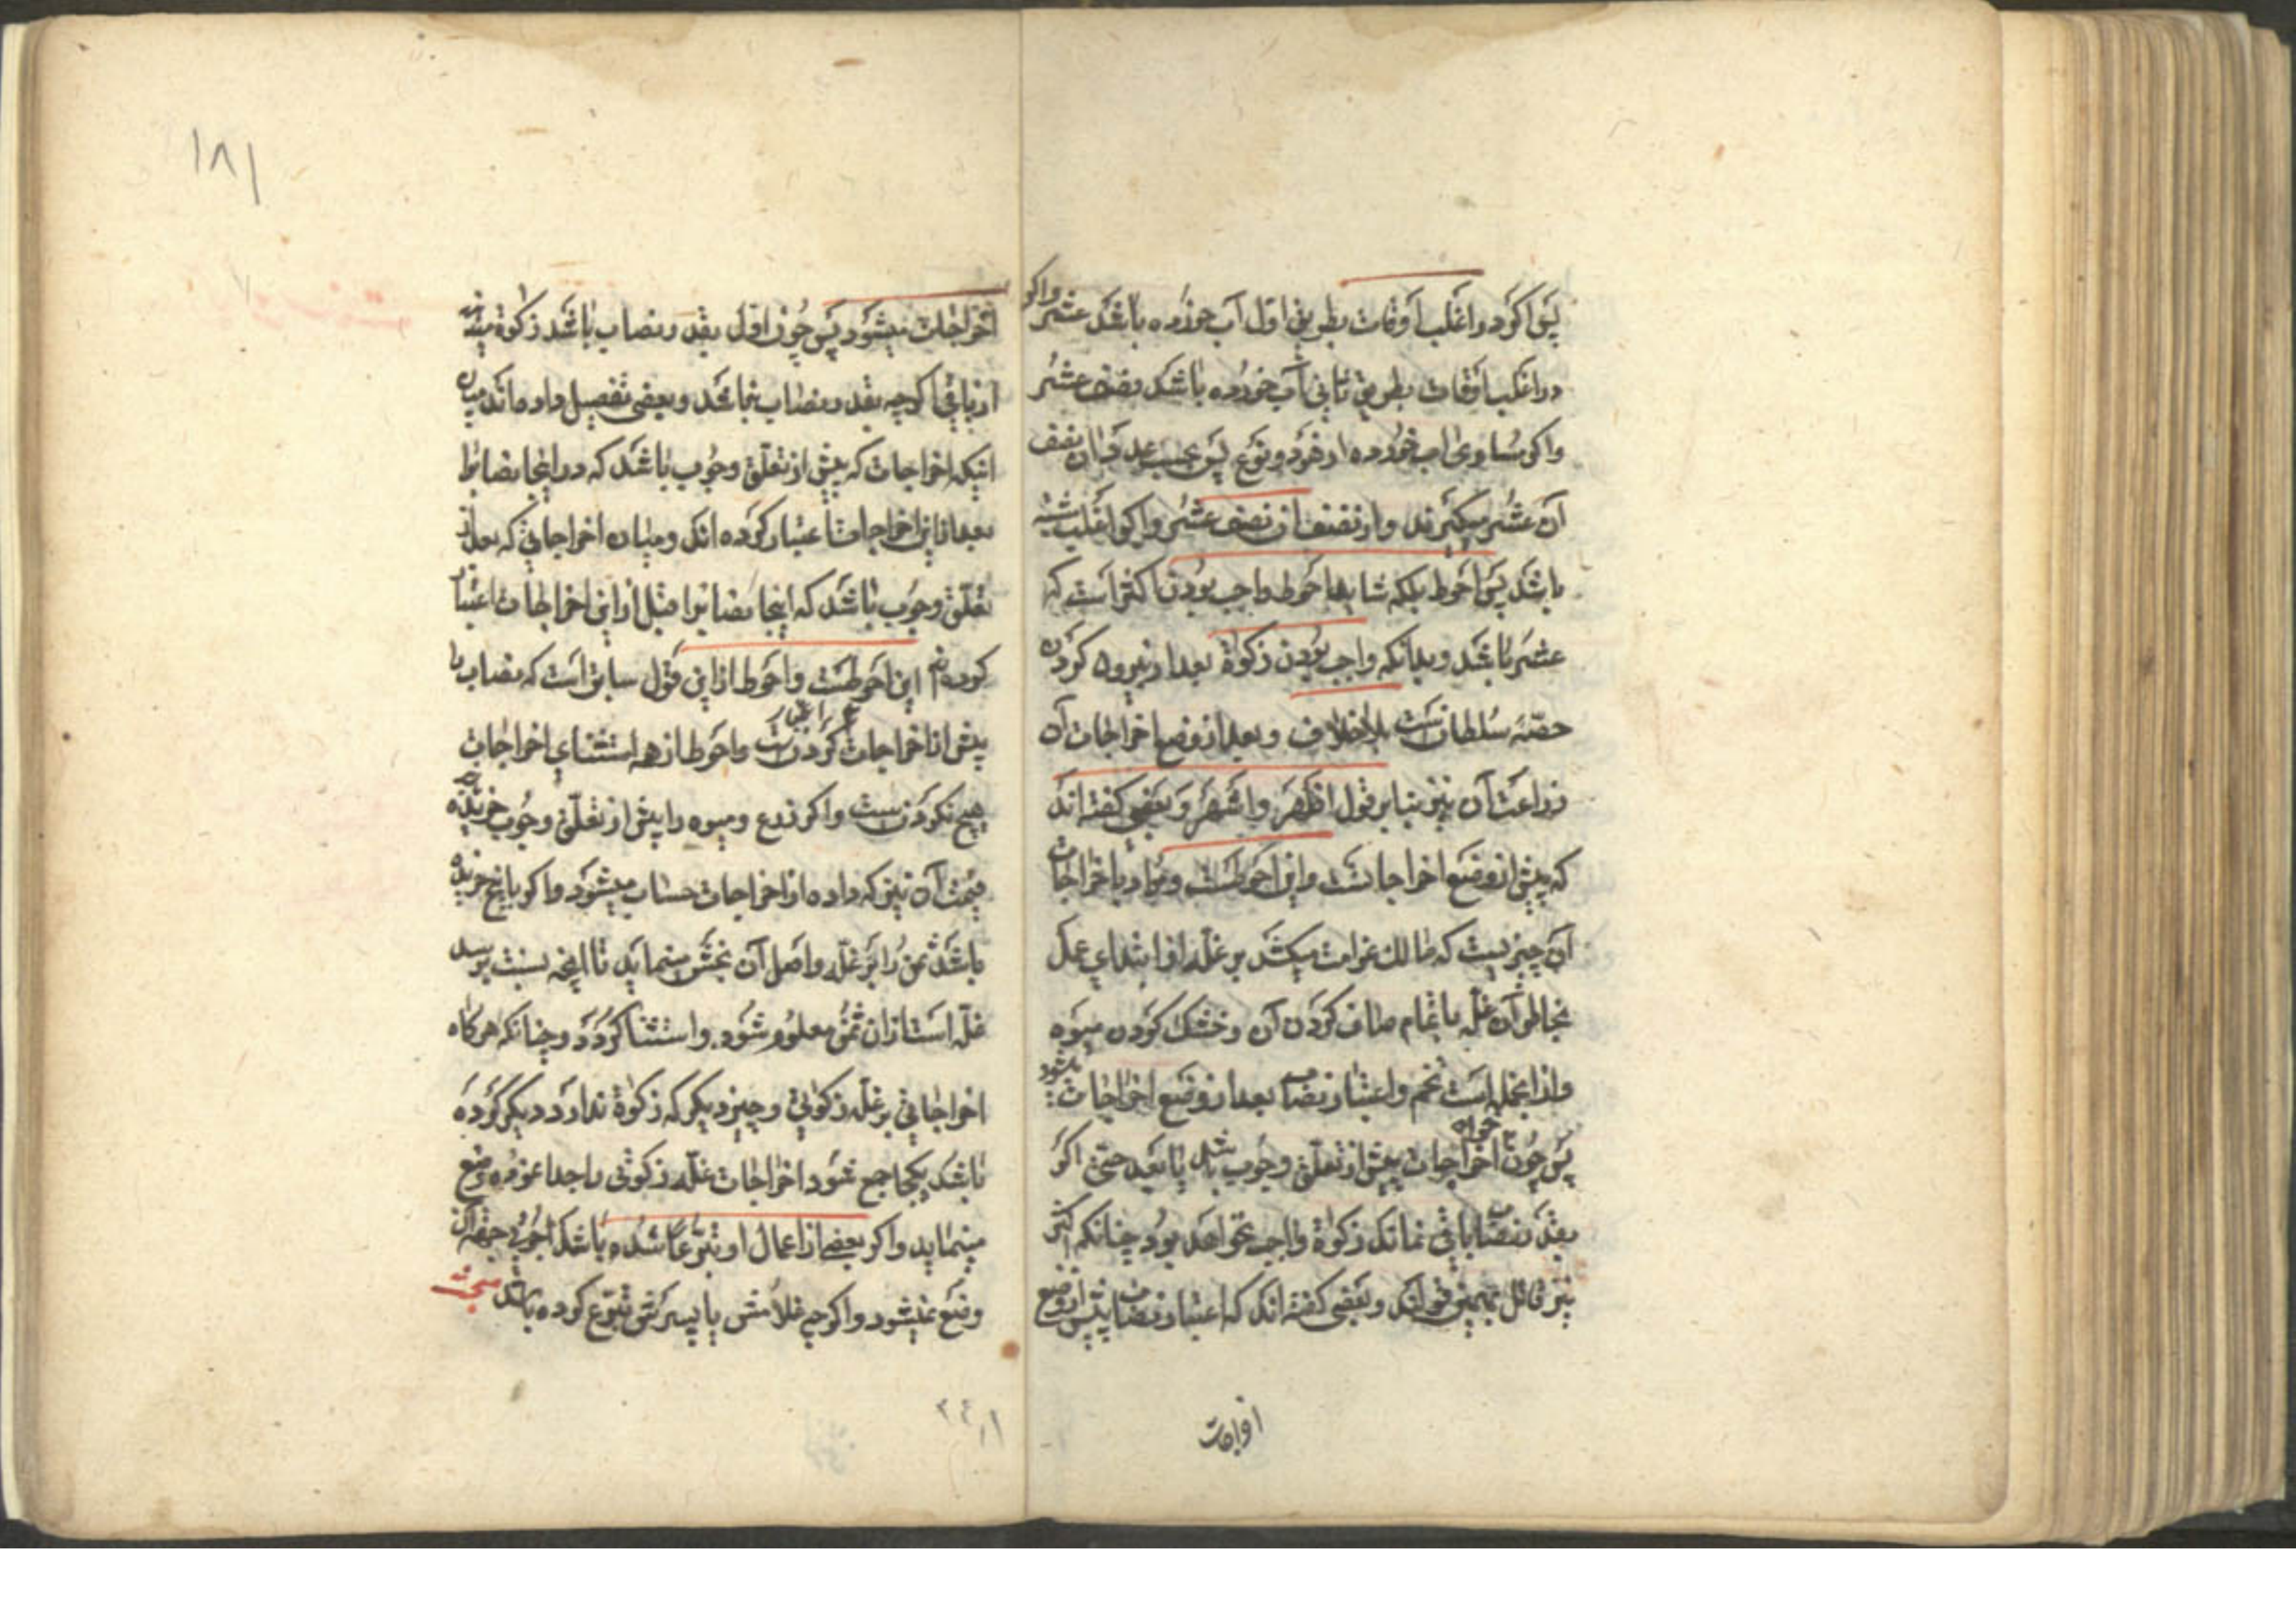 پس اگر در اغلب اوقات بطریق اول آب خورده باشد عشر واگر
در اغلب اوقات بطریق ثانی آب خورده باشد نصف عشر
واگر مساوی آب خورده از هر دو نوع پس بحسب عدد میان نصف
آن عشر میگیرند و از نصف آن نصف عشر و اگر اغلب مشتبه
باشد پس احوط بلکه شاید احوط واجب بودن اکثر است که
عشر باشد و بدانکه واجب بودن زکوة بعد از بیرون کردن
حصّهٔ سلطانست بلاخلاف و بعد از وضع اخراجات آن
زراعت آن نیز بنابر قول اظهر و اشهر و بعضی گفته اند
که پیش از وضع اخراجاتست و این احوطست و مراد باخراجات
آن چیزیست که مالک غرامت میکشد بر غلّه از ابتدای عمل
بجهة آن غلّه با تمام صاف کردن آن و خشک کردن میوه
و از انجمله است تخم و اعتبار نصاب بعد از وضع اخراجات میشود
پس چون اخراجات خواه پیش از تعلّق وجوب باشد یا بعد حتی اگر
بقدر نصاب باقی نماند زکوة واجب نخواهد بود چنانکه اکثر
نیز قائل بهمین قولند و بعضی گفته اند که اعتبار نصاب پیش از وضع
اخراجات
اخراجات میشود پس چون اول بقدر نصاب باشد زکوة میدهد
از باقی اگرچه بقدر نصاب نباشد و بعضی تفصیل داده اند میان
اینکه اخراجات که پیش از تعلّق وجوب باشد که در اینجا نصاب را
بعد از این اخراجات اعتبار کرده اند و میان اخراجاتی که بعد از
تعلّق وجوب باشد که اینجا نصاب را قبل از این اخراجات اعتبار
کرده اند این احوطست و احوط از این قول سابق است که نصاب را
پیش از اخراجات اعتبار کردنست و احوط از همه استثنای اخراجات
هیچ نکردنست و اگر زرع و میوه را پیش از تعلّق وجوب خریده
قیمت آن نیز که داده از اخراجات حساب میشود و اگر با بیخ خریده
باشد ثمن را بر غلّه و اصل آن بخش مینماید تا آنچه بنسبت بر سد
غلّه است از آن ثمن معلوم شود و استثنا کردد و چنانکه هرگاه
اخراجاتی بر غلّه زکوتی و چیز دیگر که زکوة ندارد دیگر کرده
باشد یکجا جمع شود اخراجات غلّه زکوتی را جدا نموده وضع
مینماید و اگر بعضی از اعمال او تبرّعا شده باشد اجرت جهة آن
وضع نمیشود و اگرچه غلامش یا پسرش تبرّع کرده باشد مبحث
۱۸۱